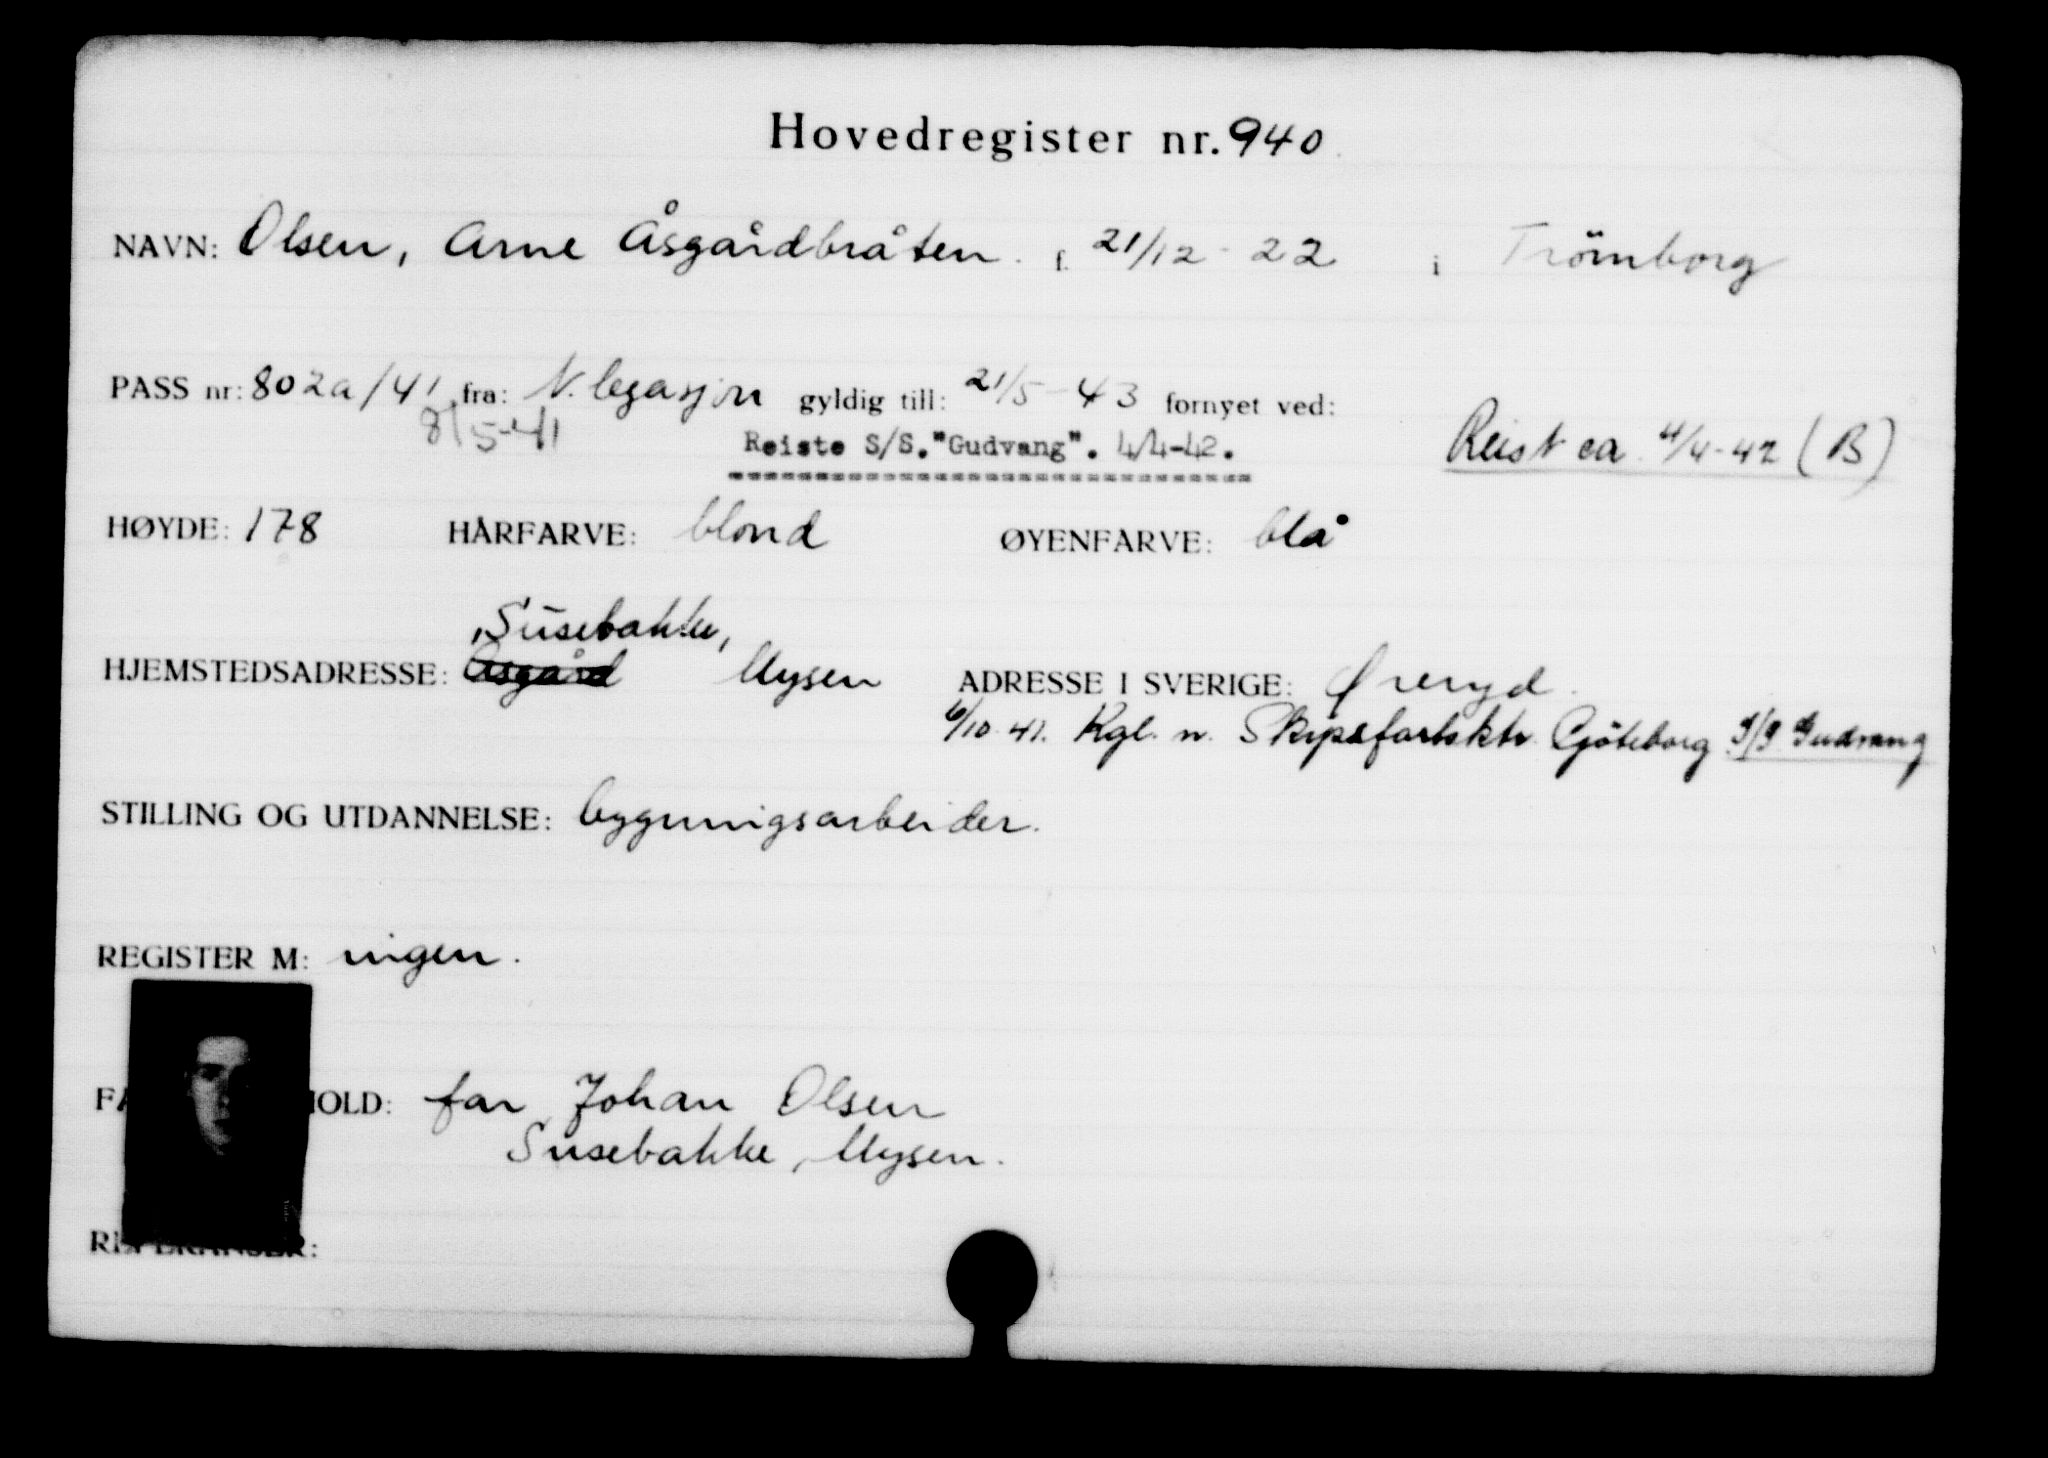 Hovedregister nr. 940
NAVN: Olsen, Arne Åsgårdbråten. f. 21/12-22 i Trömborg
PASS nr: 802a/41 fra: N. legasjon gyldig till: 21/5-43 fornyet ved:
8/5-41 Reiste S/S."Gudvang". 4/4-42. Reist ca 4/4-42 (B)
HØYDE: 178 HÅRFARVE: blond ØYENFARVE: blå
Susebakke,
HJEMSTEDSADRESSE: Åsgård Mysen ADRESSE I SVERIGE: Øreryd.
6/10 41. Kgl. n. Skipsfartsktr. Göteborg S/S Gudvang
STILLING OG UTDANNELSE: bygningsarbeider.
REGISTER M: ingen.
far Johan Olsen
Susebakke, Mysen.
REFERANSER: